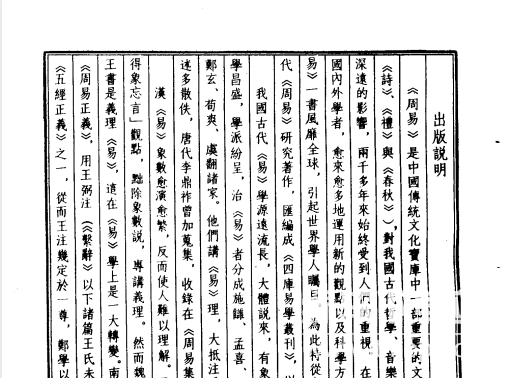 出版説明
《周易》是中國傳統文化寶庫中一部重要的文
《詩》、《禮》與《春秋》)，對我國古代哲學、音樂
深遠的影響，兩千多年來始終受到人們的重視。在
國內外學者，愈來愈多地運用新的觀點以及科學方
易》一書風靡全球，引起世界學人矚目。為此特從
代《周易》研究著作，匯編成《四庫易學叢刊》，以
我國古代《易》學源遠流長，大體説來，有象
學昌盛，學派紛呈，治《易》者分成施讎、孟喜、
鄭玄、荀爽、虞翻諸家。他們講《易》理，大抵注
述多散佚，唐代李鼎祚曾加蒐集，收錄在《周易集
漢《易》象數愈演愈繁，反而使人難以理解。
得象忘言」觀點，黜除象數説，專講義理。然而魏
王書是義理《易》，這在《易》學上是一大轉變。南
《周易正義》，用王弼注(《繫辭》以下諸篇王氏未
《五經正義》之一，從而王注幾定於一尊，鄭學以